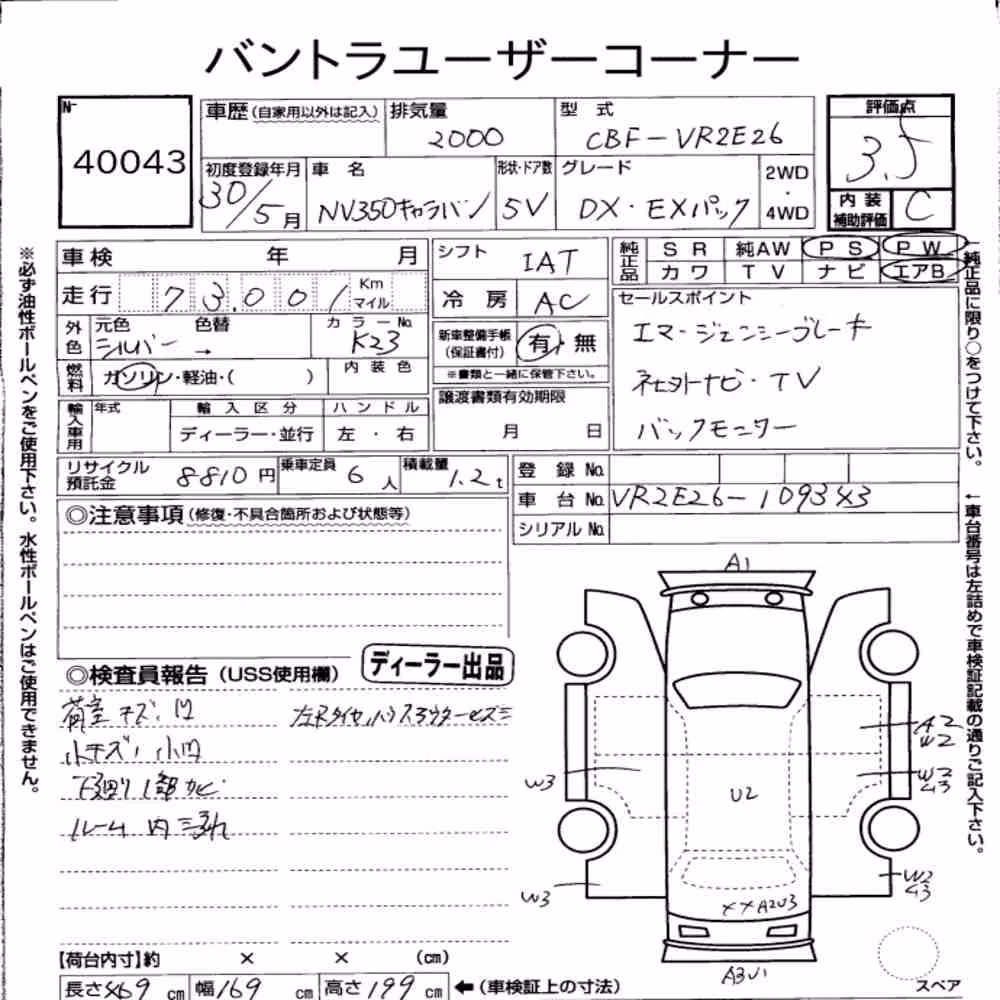 バントラユーザーコーナー
No
40043
車歴 (自家用以外は記入)
排気量
2000
型 式
CBF-VR2E26
評価点
3.5
内装
補助評価
C
初度登録年月
30/5月
車 名
NV350キャラバン
形状・ドア数
5V
グレード
DX・EXパック
2WD
・
4WD
車検 年 月
走行 73,001 Km
マイル
外色
元色 シルバー
色替 →
カラーNo.
K23
燃料
ガソリン・軽油・( )
内装色
輸入車用
年式
輸入区分
ディーラー・並行
ハンドル
左・右
シフト
IAT
冷房
AC
新車整備手帳
(保証書付)
有・無
※書類と一緒に保管下さい。
譲渡書類有効期限
月 日
純正品
SR 純AW PS PW
カワ TV ナビ エアB
セールスポイント
エマージェンシーブレーキ
社外ナビ・TV
バックモニター
リサイクル
預託金
8810円
乗車定員
6人
積載量
1.2t
登録No.
車台No. VR2E26-109343
シリアルNo.
◎注意事項 (修復・不具合箇所および状態等)
◎検査員報告 (USS使用欄)
ディーラー出品
荷室キズ、凹
小キズ、小凹
下廻り1部サビ
ルーム内汚れ
A1
A2
W2
W3
W2
43
U2
W3
W2
43
XXA2U3
A3U1
スペア
【荷台内寸】約 × × (cm)
長さ469cm 幅169cm 高さ199cm ←(車検証上の寸法)
※必ず油性ボールペンをご使用下さい。水性ボールペンはご使用できません。
←純正品に限り○をつけて下さい。
←車台番号は左詰めで車検証記載の通りご記入下さい。